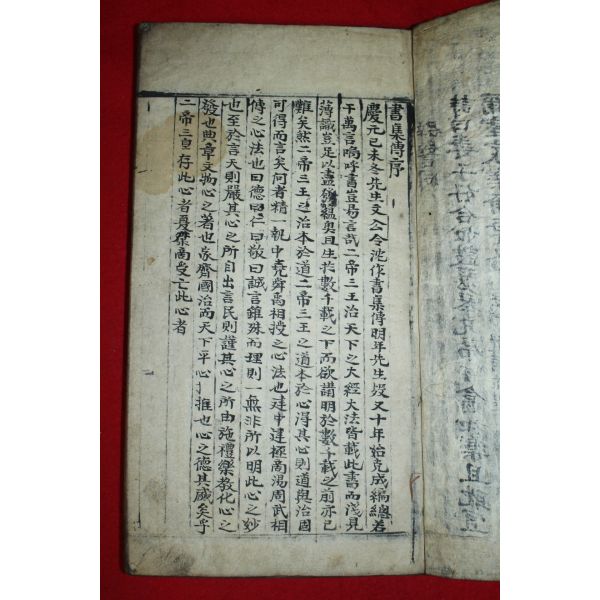 書集傳序
慶元己未冬先生文公令沈作書集傳明年先生歿又十年始克成編總若
干萬言嗚呼書豈易言哉二帝三王治天下之大經大法皆載此書而淺見
薄識豈足以盡發蘊奧且生於數千載之下而欲講明於數千載之前亦已
難矣然二帝三王之治本於道二帝三王之道本於心得其心則道與治固
可得而言矣何者精一執中堯舜禹相授之心法也建中建極商湯周武相
傳之心法也曰德曰仁曰敬曰誠言雖殊而理則一無非所以明此心之妙
也至於言天則嚴其心之所自出言民則謹其心之所由施禮樂教化心之
發也典章文物心之著也家齊國治而天下平心之推也心之德其盛矣乎
二帝三皇存此心者夏桀商受亡此心者